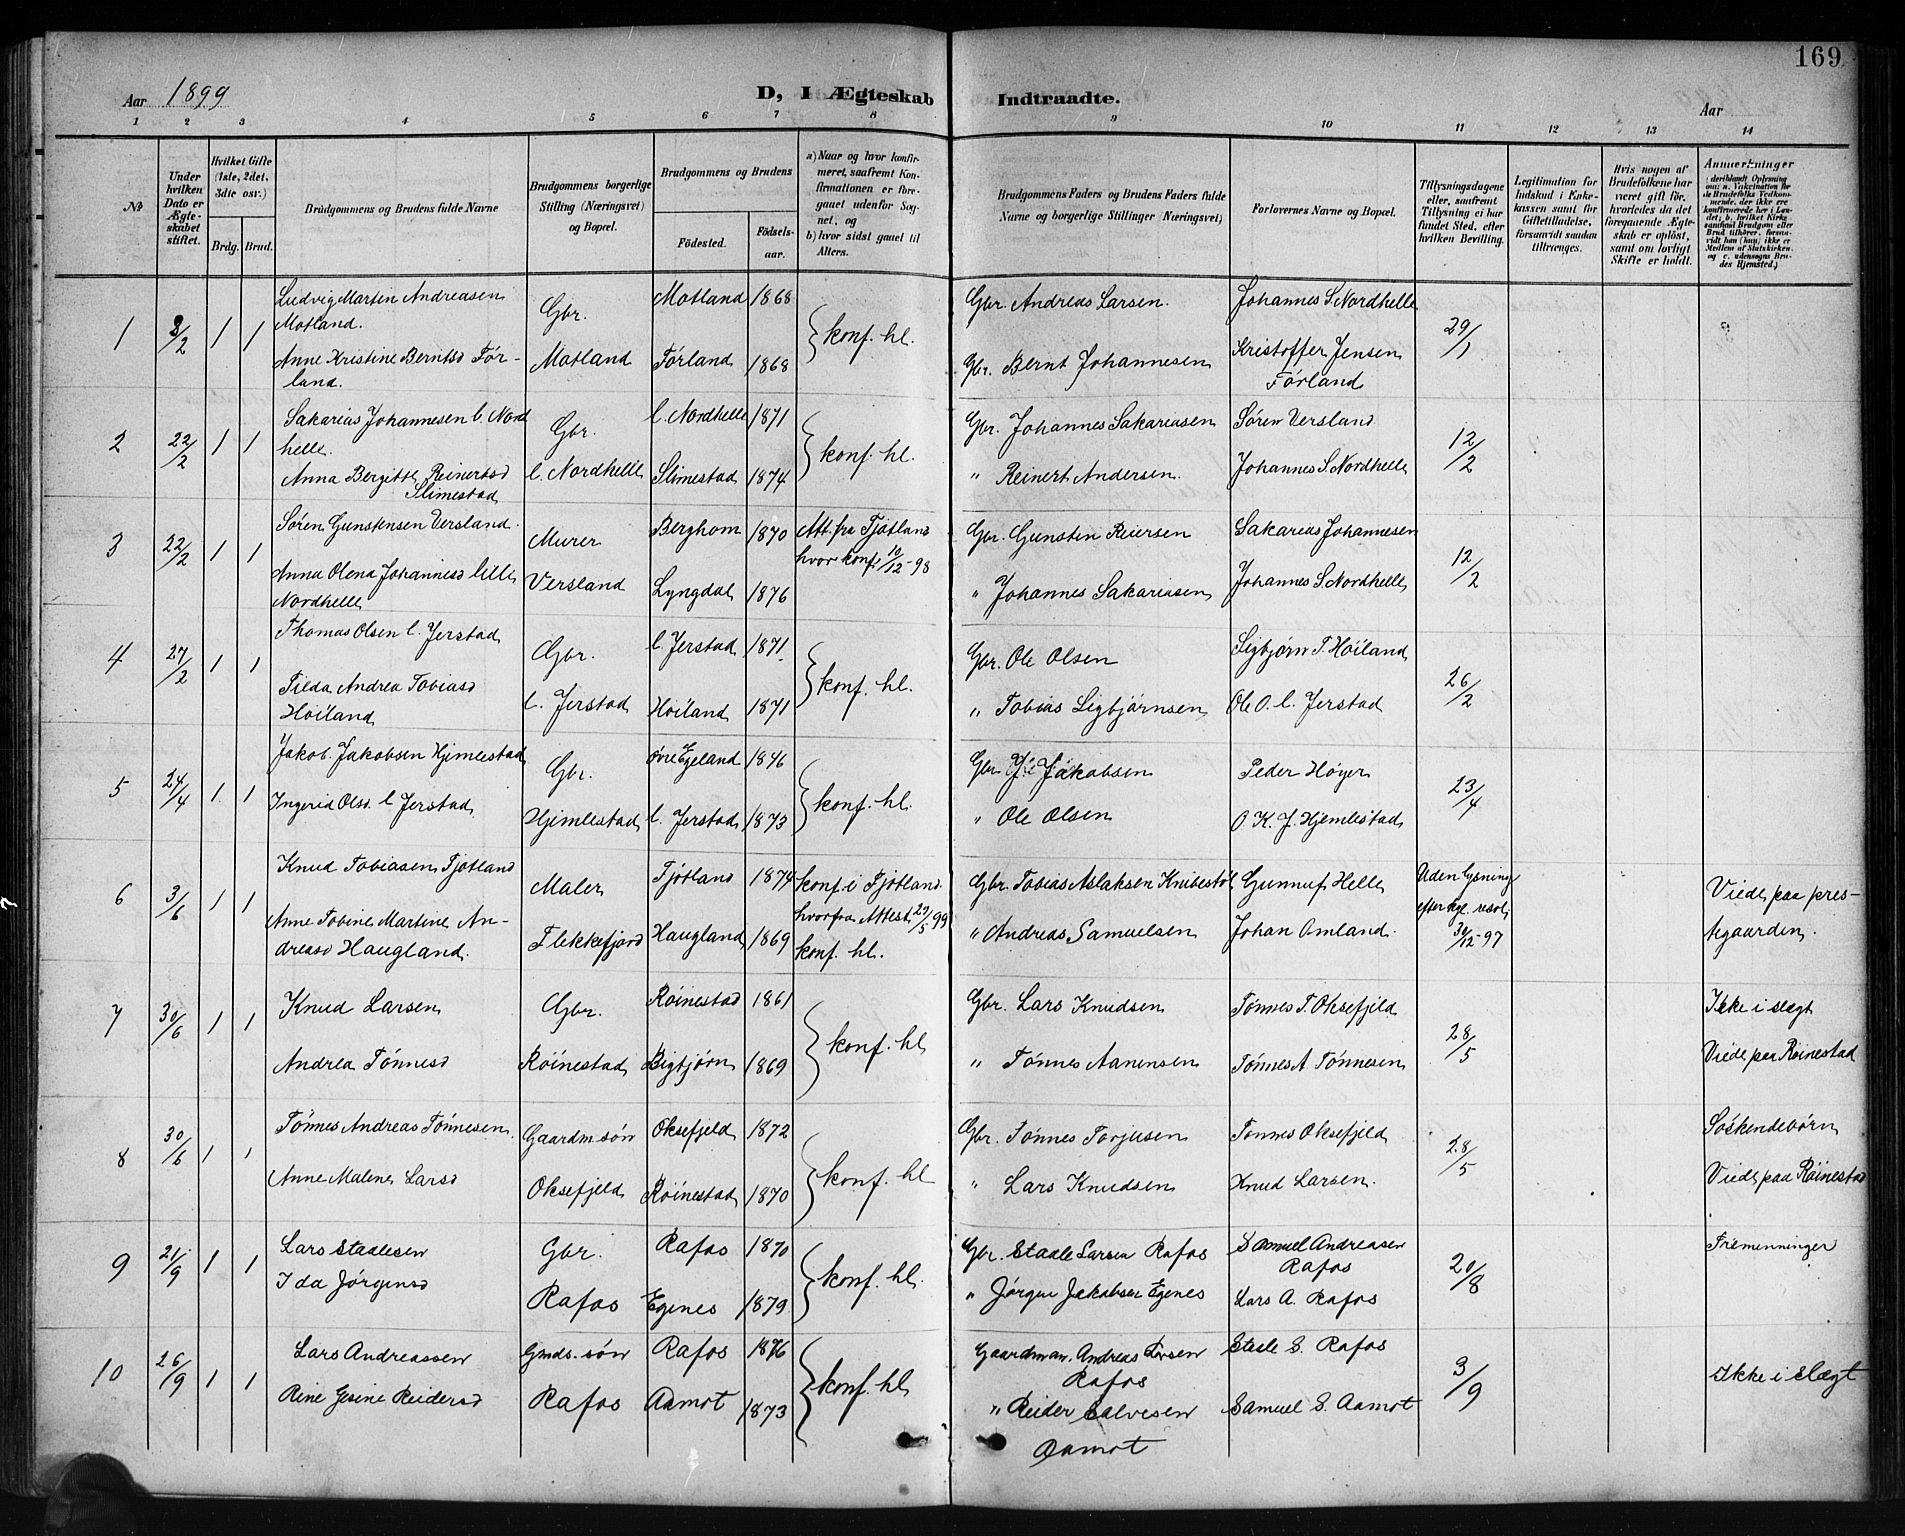 169
Aar 1899
D, I Ægteskab Indtraadte.
Aar
1 2 3 4 5 6 7 8 9 10 11 12 13 14
No
Under hvilken Dato er Ægteskabet stiftet.
Hvilket Gifte (1ste, 2det, 3die osv.)
Brdg. Brud.
Brudgommens og Brudens fulde Navne
Brudgommens borgerlige Stilling (Næringsvei) og Bopæl.
Brudgommens og Brudens
Fødested.
Fødselsaar.
a) Naar og hvor konfirmeret, saafremt Konfirmationen er foregaaet udenfor Sognet, og
b) hvor sidst gaaet til Alters.
Brudgommens Faders og Brudens Faders fulde Navne og borgerlige Stillinger Næringsvei)
Forlovernes Navne og Bopæl.
Tillysningsdagene eller, saafremt Tillysning ei har fundet Sted, efter hvilken Bevilling.
Legitimation for Indskud i Enkekassen samt for Giftetilladelse, forsaavidt saadan tiltrænges.
Hvis nogen af Brudefolkene har været gift før, hvorledes da det foregaaende Ægteskab er opløst, samt om lovligt Skifte er holdt.
Anmærkninger
(deriblandt Oplysning om: a. Vaccination for de Brudefolks Vedkommende, der ikke ere konfirmerede her i Landet; b. hvilket Kirkesamfund Brudgom eller Brud tilhører, forsaavidt han (hun) ikke er Medlem af Statskirken, og c. udensogns Brudes Hjemsted.)
1 8/2 1 1 Ludvig Martin Andreasen Motland. Gbr. Motland 1868 } konf. hl. Gbr. Andreas Larsen. Johannes S. Nordhelle 29/1
Anne Kristine Berntsd Førland. Motland Førland 1868 Gbr. Bernt Johannesen Kristoffer Jensen Førland
2 22/2 1 1 Sakarias Johannesen l. Nordhelle. Gbr. l. Nordhelle 1871 } konf. hl. Gbr. Johannes Sakariasen Søren Versland 12/2
Anna Bergitte Reinertsd Slimestad l. Nordhelle Slimestad 1874 " Reinert Andersen. Johannes S. Nordhelle
3 22/2 1 1 Søren Gunstensen Versland. Murer Berghom 1870 Att. fra Fjotland hvor konf. 10/12-98 Gbr. Gunsten Reiersen Sakarias Johannesen 12/2
Anna Olena Johannesd lille Nordhelle Versland Lyngdal 1876 " Johannes Sakariasen Johannes S. Nordhelle
4 27/2 1 1 Thomas Olsen l. Jerstad Gbr. l. Jerstad 1871 } konf. hl. Gbr. Ole Olsen Sigbjørn T. Høiland 26/2
Tilda Andrea Tobiasd Høiland l. Jerstad Høiland 1871 " Tobias Sigbjørnsen Ole O. l. Jerstad
5 24/4 1 1 Jakob Jakobsen Hjemlestad Gbr. øvre Egeland 1846 } konf. hl. Gbr. J. Jakobsen Peder Høyer 23/4
Ingerid Olsd. l. Jerstad Hjemlestad l. Jerstad 1873 " Ole Olsen O. K. J. Hjemlestad
6 3/6 1 1 Knud Tobiasen Fjotland Maler Fjotland 1874 konf. i Fjotland hvorfra Attest 29/5 99 Gbr. Tobias Aslaksen Knibestøl Gunnuf Helle Uden lysning efter kgl. resol. 30/12-97 Viede paa prestegaarden.
Anne Tobine Martine Andreasd Haugland. Flekkefjord Haugland 1869 konf. hl. " Andreas Samuelsen Johan Omland.
7 30/6 1 1 Knud Larsen Gbr. Røinestad 1861 } konf. hl Gbr. Lars Knudsen Tønnes T. Oksefjeld 28/5 Ikke i slegt
Andrea Tønnesd Røinestad Bigbjørn 1869 " Tønnes Aanensen Tønnes A Tønnesen Viede paa Røinestad
8 30/6 1 1 Tønnes Andreas Tønnesen Gaardm. søn Oksefjeld 1872 } konf. hl Gbr. Tønnes Torjusen Tønnes Oksefjeld 28/5 Søskendebørn
Anne Malene Larsd Oksefjeld Røinestad 1870 " Lars Knudsen Knud Larsen. Viede paa Røinestad
9 21/9 1 1 Lars Staalesen Gbr. Rafos 1870 } konf. hl. Gbr. Staale Larsen Rafos Samuel Andreasen Rafos 20/8 Fremenninger
Ida Jørgensd Rafos Egenes 1879 " Jørgen Jakobsen Egenes Lars A. Rafos
10 26/9 1 1 Lars Andreassen Gmds. søn Rafos 1876 } konf. hl Gaardman. Andreas Larsen Rafos Staale S. Rafos 3/9 Ikke i slægt
Rine Gesine Reidersd Rafos Aamot 1873 " Reider Salvesen Aamot Samuel S. Aamot